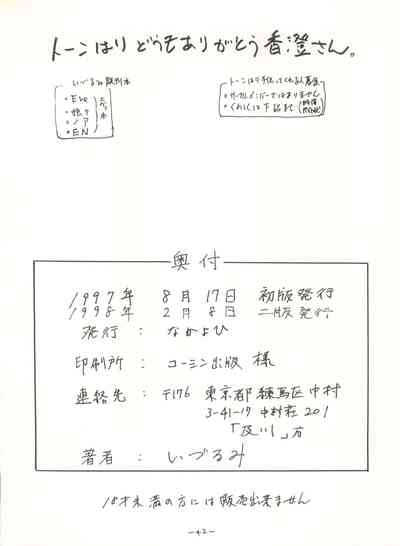 トーンはり どうもありがとう 香澄さん。
いづるみ 既刊本
・Eve
・ノア
・EN
トーンはり手伝ってくれる人募金
・サークルメンバーではありません
・くわしくは下記まで
奥付
1997年 8月17日 初版発行
1998年 2月8日 二版発行
発行 : なかよひ
印刷所 : コーシン出版 様
連絡先 : 〒176 東京都練馬区中村
3-41-17 中村荘201
「及川」方
著者 : いづるみ
18才未満の方には販売出来ません
-42-